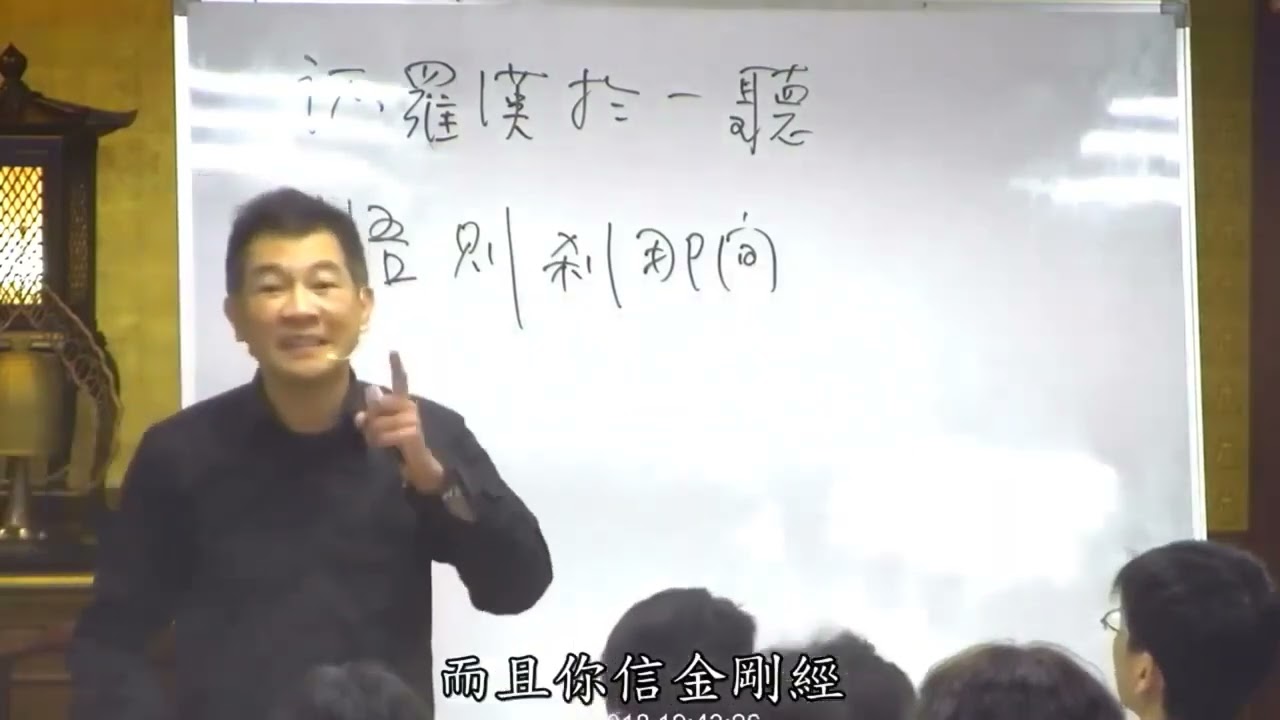 阿羅漢於一聽
悟則刹那間
而且你信金剛經